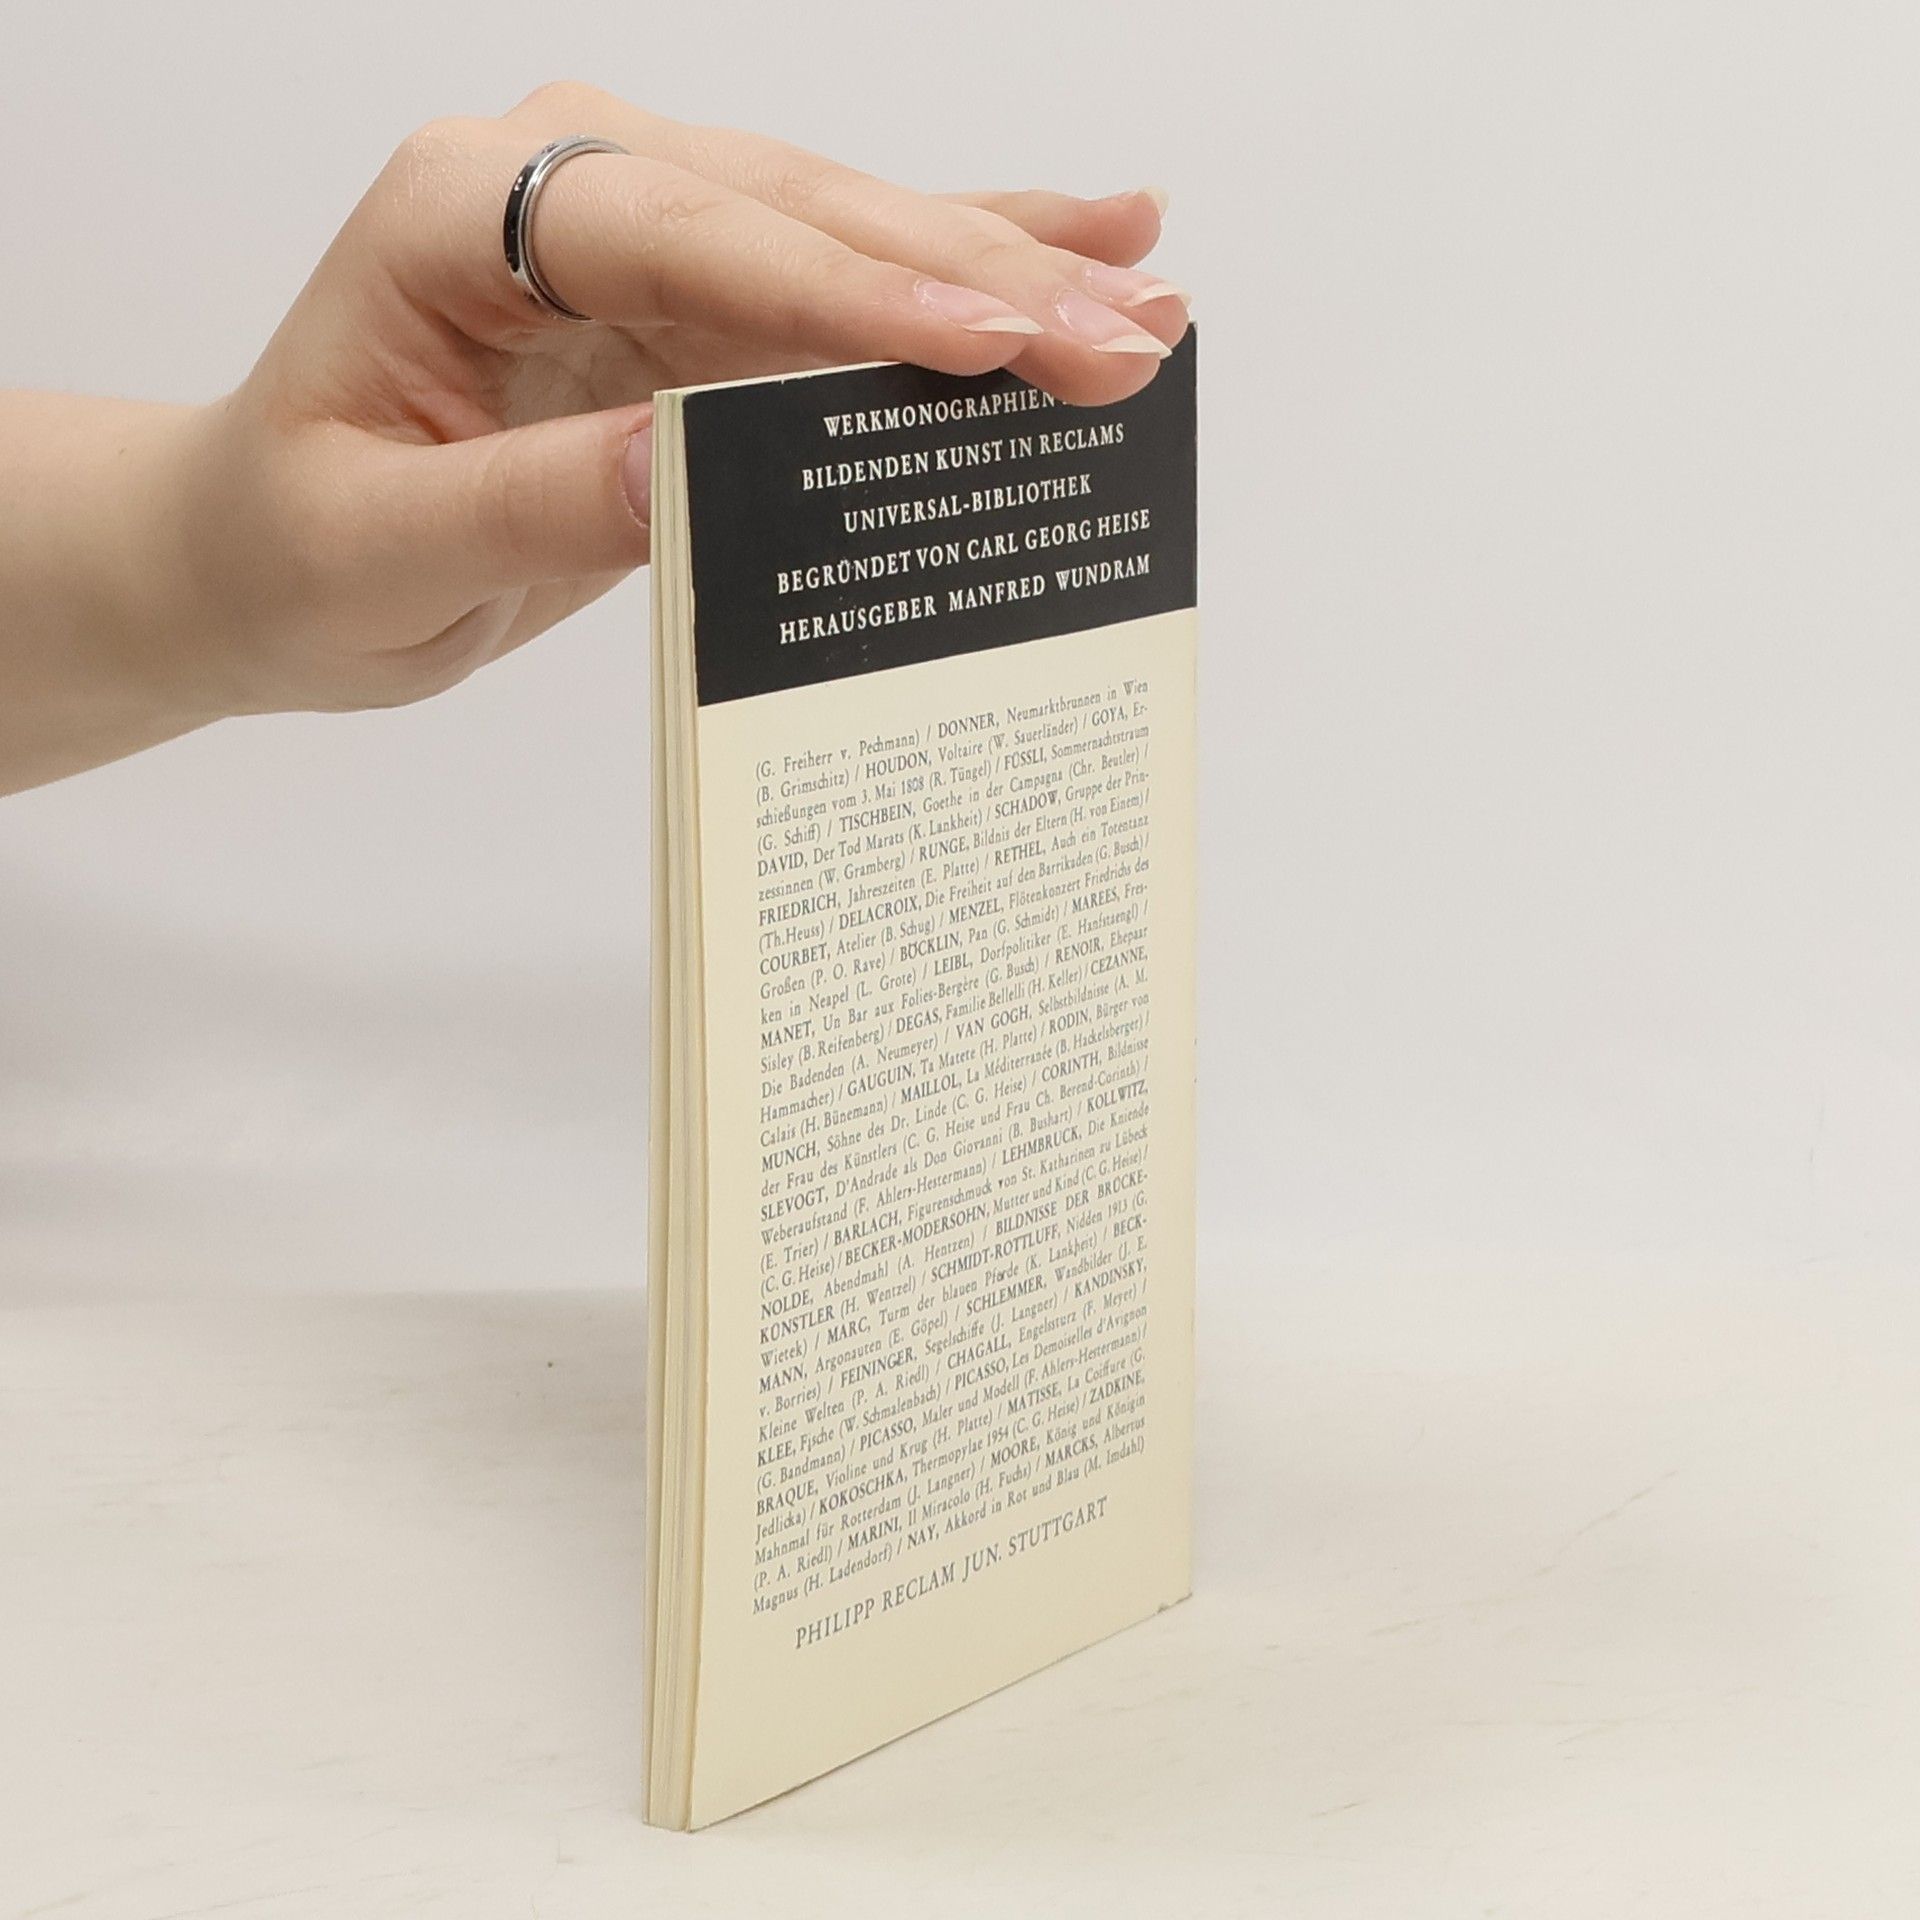 WERKMONOGRAPHIEN
BILDENDEN KUNST IN RECLAMS
UNIVERSAL-BIBLIOTHEK
BEGRÜNDET VON CARL GEORG HEISE
HERAUSGEBER MANFRED WUNDRAM
(G. Freiherr v. Pechmann) / DONNER, Neumarktbrunnen in Wien
(B. Grimschitz) / HOUDON, Voltaire (W. Sauerländer) / GOYA, Er-
schießungen vom 3. Mai 1808 (R. Tüngel) / FÜSSLI, Sommernachtstraum
(G. Schiff) / TISCHBEIN, Goethe in der Campagna (Chr. Beutler) /
DAVID, Der Tod Marats (K. Lankheit) / SCHADOW, Gruppe der Prin-
zessinnen (W. Gramberg) / RUNGE, Bildnis der Eltern (H. von Einem) /
FRIEDRICH, Jahreszeiten (E. Platte) / RETHEL, Auch ein Totentanz
(Th. Heuss) / DELACROIX, Die Freiheit auf den Barrikaden (G. Busch) /
COURBET, Atelier (B. Schug) / MENZEL, Flötenkonzert Friedrichs des
Großen (P. O. Rave) / BÖCKLIN, Pan (G. Schmidt) / MAREES, Fres-
ken in Neapel (L. Grote) / LEIBL, Dorfpolitiker (E. Hanfstaengl) /
MANET, Un Bar aux Folies-Bergère (G. Busch) / RENOIR, Ehepaar
Sisley (B. Reifenberg) / DEGAS, Familie Bellelli (H. Keller) / CEZANNE,
Die Badenden (A. Neumeyer) / VAN GOGH, Selbstbildnisse (A. M.
Hammacher) / GAUGUIN, Ta Matete (H. Platte) / RODIN, Bürger von
Calais (H. Bünemann) / MAILLOL, La Méditerranée (B. Hackelsberger) /
MUNCH, Söhne des Dr. Linde (C. G. Heise) / CORINTH, Bildnisse
der Frau des Künstlers (C. G. Heise und Frau Ch. Berend-Corinth) /
SLEVOGT, D'Andrade als Don Giovanni (B. Bushart) / KOLLWITZ,
Weberaufstand (F. Ahlers-Hestermann) / LEHMBRUCK, Die Kniende
(E. Trier) / BARLACH, Figurenschmuck von St. Katharinen zu Lübeck
(C. G. Heise) / BECKER-MODERSOHN, Mutter und Kind (C. G. Heise) /
NOLDE, Abendmahl (A. Hentzen) / BILDNISSE DER BRÜCKE-
KÜNSTLER (H. Wentzel) / SCHMIDT-ROTTLUFF, Nidden 1913 (G.
Wietek) / MARC, Turm der blauen Pferde (K. Lankheit) / BECK-
MANN, Argonauten (E. Göpel) / SCHLEMMER, Wandbilder (J. E.
v. Borries) / FEININGER, Segelschiffe (J. Langner) / KANDINSKY,
Kleine Welten (P. A. Riedl) / CHAGALL, Engelssturz (F. Meyer) /
KLEE, Fische (W. Schmalenbach) / PICASSO, Les Demoiselles d'Avignon
(G. Bandmann) / PICASSO, Maler und Modell (F. Ahlers-Hestermann) /
BRAQUE, Violine und Krug (H. Platte) / MATISSE, La Coiffure (G.
Jedlicka) / KOKOSCHKA, Thermopylae 1954 (C. G. Heise) / ZADKINE,
Mahnmal für Rotterdam (J. Langner) / MOORE, König und Königin
(P. A. Riedl) / MARINI, Il Miracolo (H. Fuchs) / MARCKS, Albertus
Magnus (H. Ladendorf) / NAY, Akkord in Rot und Blau (M. Imdahl)
PHILIPP RECLAM JUN. STUTTGART